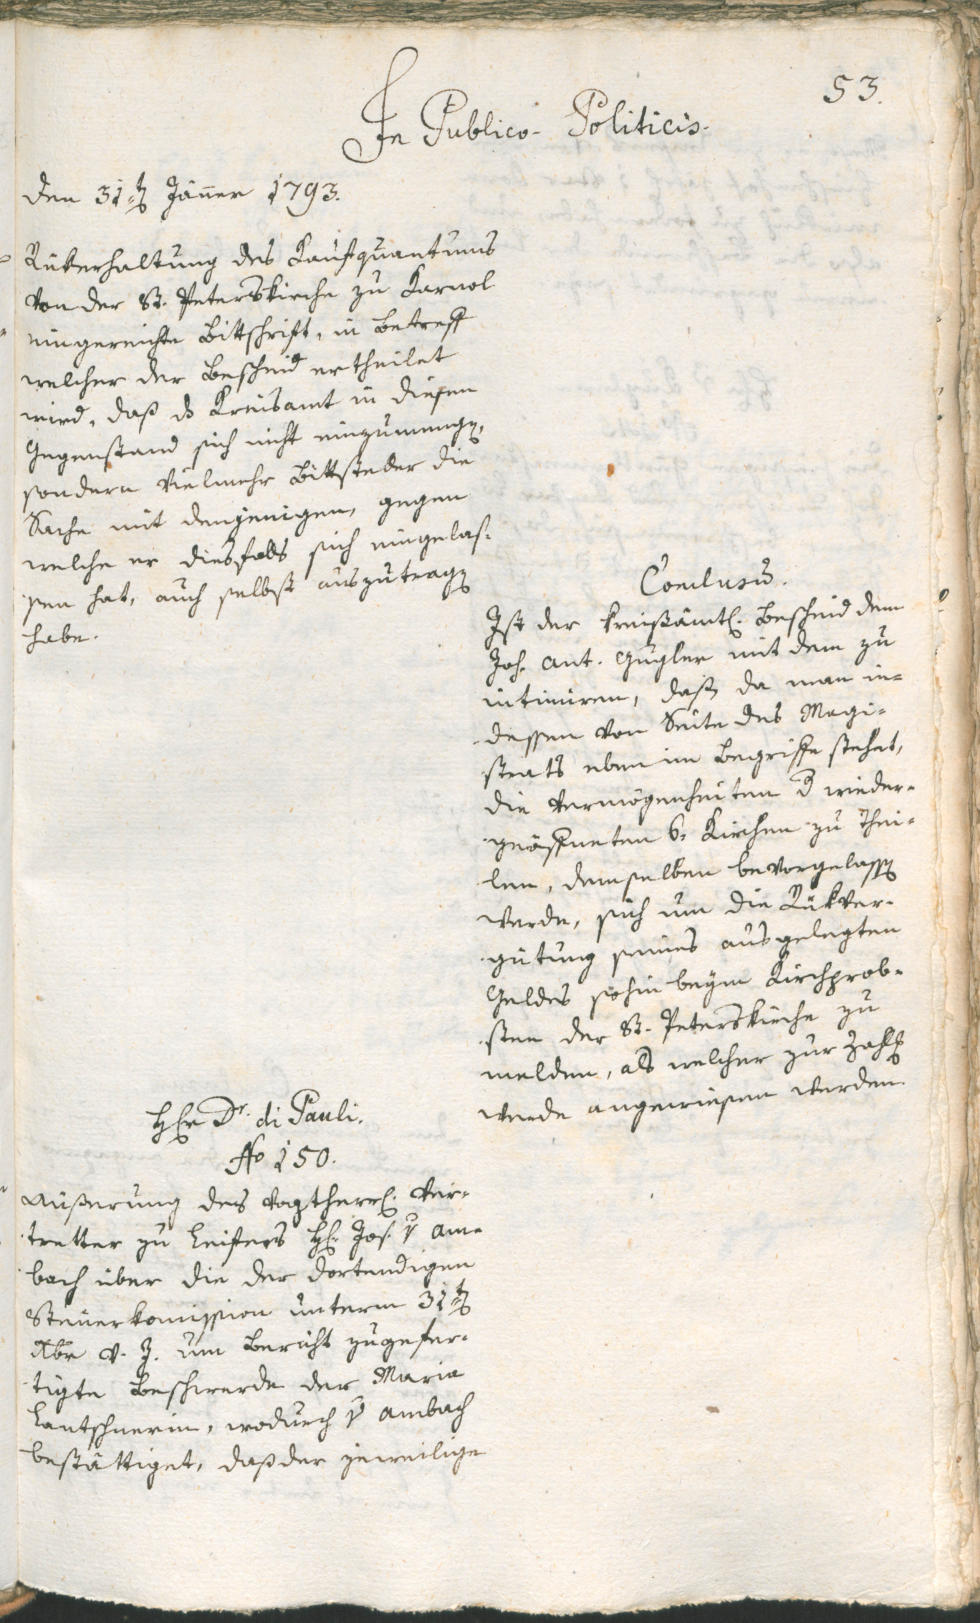 53.
In Publico-Politicis.
den 31ten Jäner 1793.
Rükerhaltung des Kaufquantums
von der St. Peterskirche zu Karnol
eingereichte Bittschrift, in Betreff
welcher der Bescheid ertheilet
wird, daß ds Kreisamt in diesen
Gegenstand sich nicht einzumengen,
sondern vielmehr Bittsteller die
Sache mit demjenigen, gegen
welche er diesfalls sich eingelas-
sen hat, auch selbst auszutragen
habe.
Conclusum.
Ist der kreisämtl. Bescheid dem
Joh. Ant. Gugler mit dem zu
intimiren, daß da man in-
dessen von Seite des Magi-
strats eben im Begriffe stehet,
die Vermögenheiten d wieder-
geöffneten 6. Kirchen zu thei-
len, demselben bevorgelassen
werde, sich um die Rükver-
gütung seines ausgelegten
Geldes sohin beym Kirchprob-
sten der St. Peterskirche zu
melden, als welcher zur Zahlg
werde angewiesen werden.
Her Dr. di Pauli.
No 150.
Aüßerung des vogtherrl. Ver-
tretter zu Leifers H. Jos. v Am-
bach über die der dortendigen
Steuerkomission unterm 31ten
Xbr v. J. um Bericht zugefer-
tigte Beschwerde der Maria
Lantschnerin, wodurch v Ambach
bestättiget, daß der jeweilige